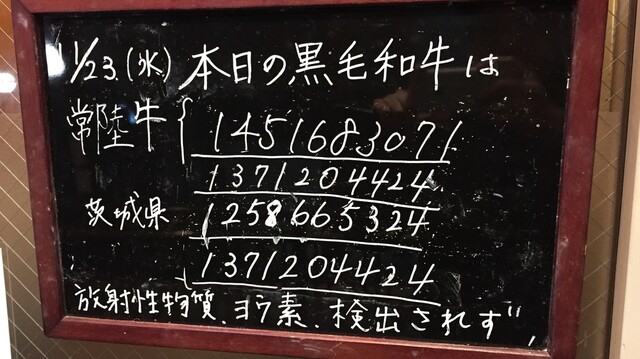 11/23.(水)本日の黒毛和牛は
常陸牛{1451683071
1371204424
茨城県 1258665324
1371204424
放射性物質、ヨウ素、検出されず",